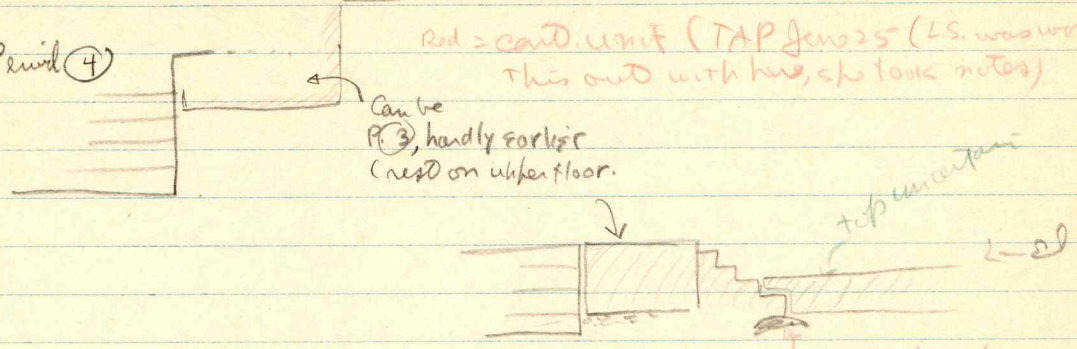 Red = cont. unit (TAP June 25 (L.S. was
this out with here, she took notes)
Period 4
Can be
P. 3, hardly earlier
(rest on upper floor.
top uncertain